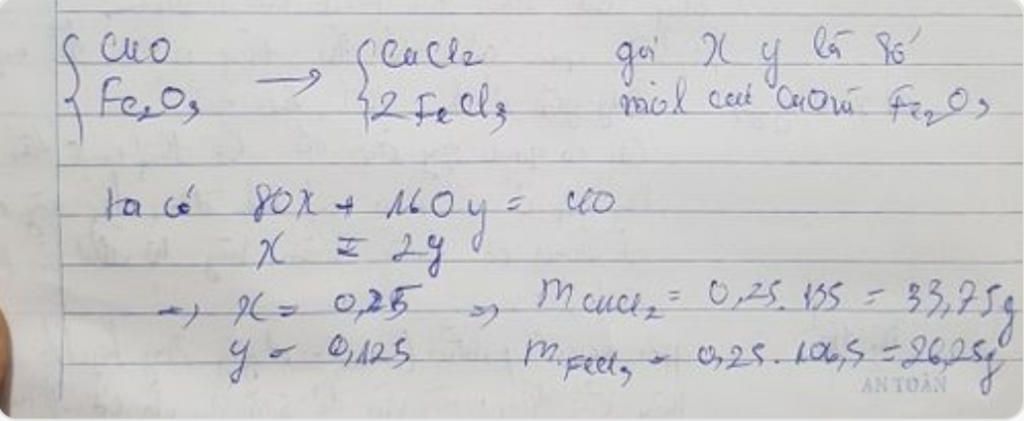 CuO → CuCl2 gọi x y là số
Fe2O3 2FeCl3 mol của CuO và Fe2O3
ta có 80x + 160y = 40
x = 2y
→ x = 0,25 => mCuCl2 = 0,25.135 = 33,75g
y = 0,125 mFeCl3 = 0,25.106,5 = 26,25g
AN TOÀN